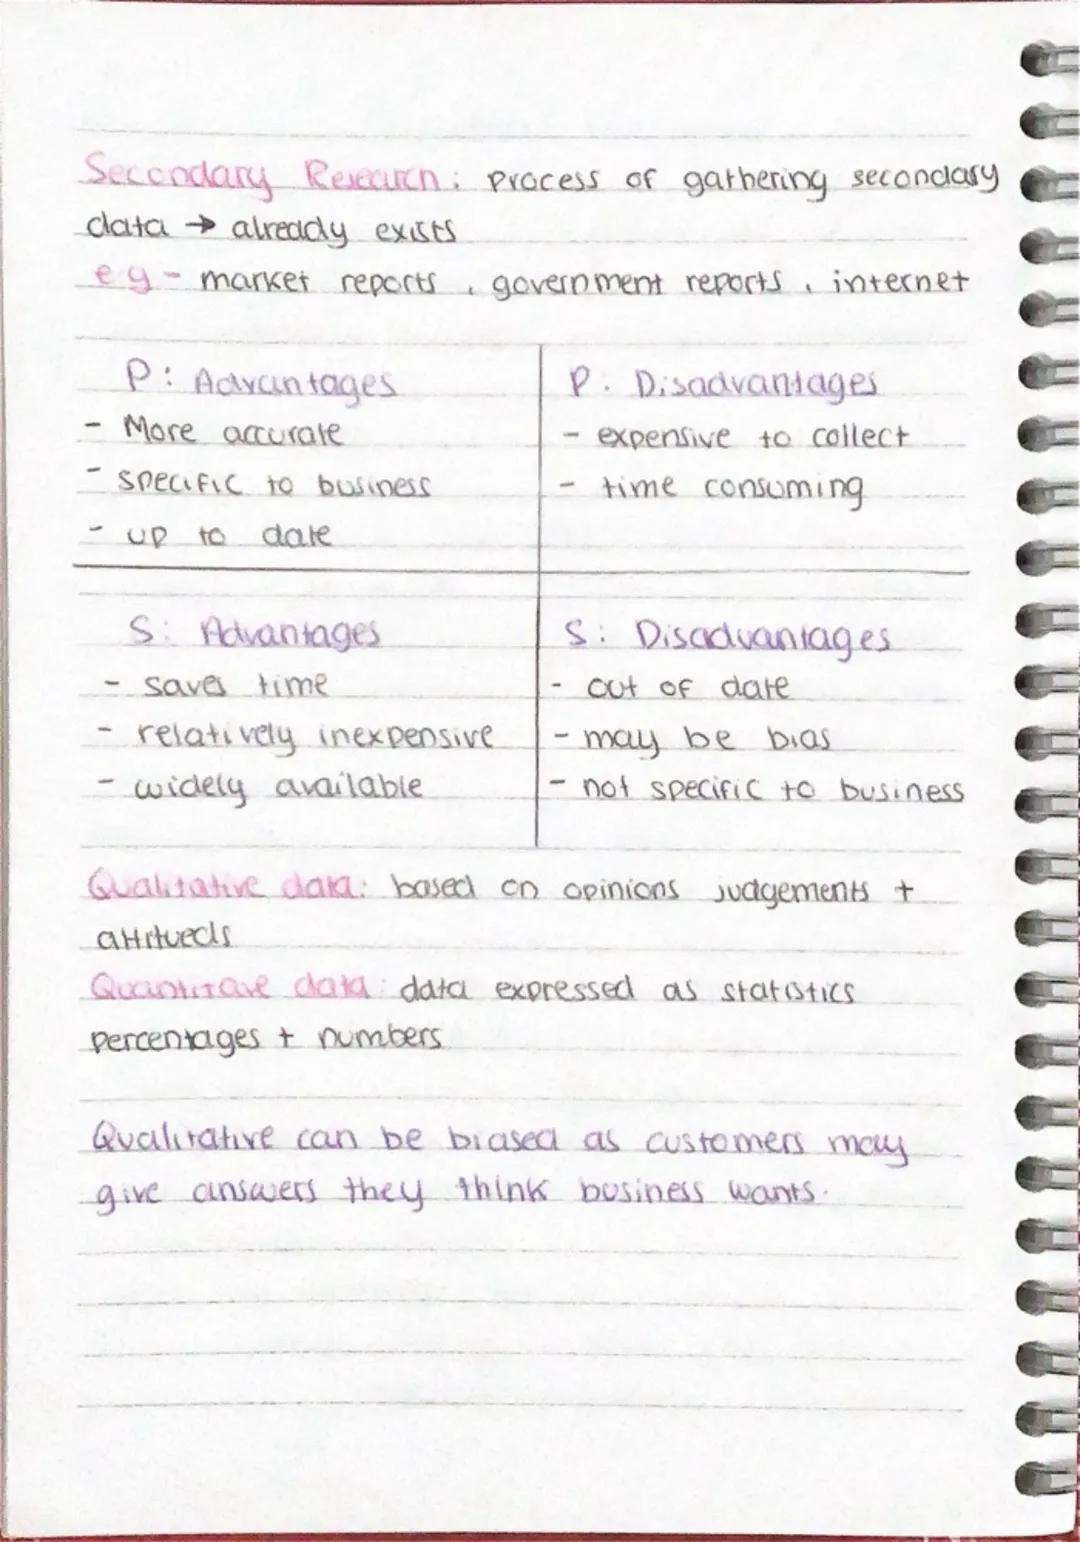 Secondary Research: process of gathering secondary
data → already exists
eg - market reports, government reports, internet
P: Advantages
- More accurate
- specific to business
- up to date
P: Disadvantages
- expensive to collect
- time consuming
S: Advantages
- saves time
- relatively inexpensive
- widely available
S: Disadvantages
- out of date
- may be bias
- not specific to business
Qualitative data: based on opinions judgements +
attitueds
Quantitave data: data expressed as statistics
percentages + numbers
Qualitative can be biased as customers may
give answers they think business wants.